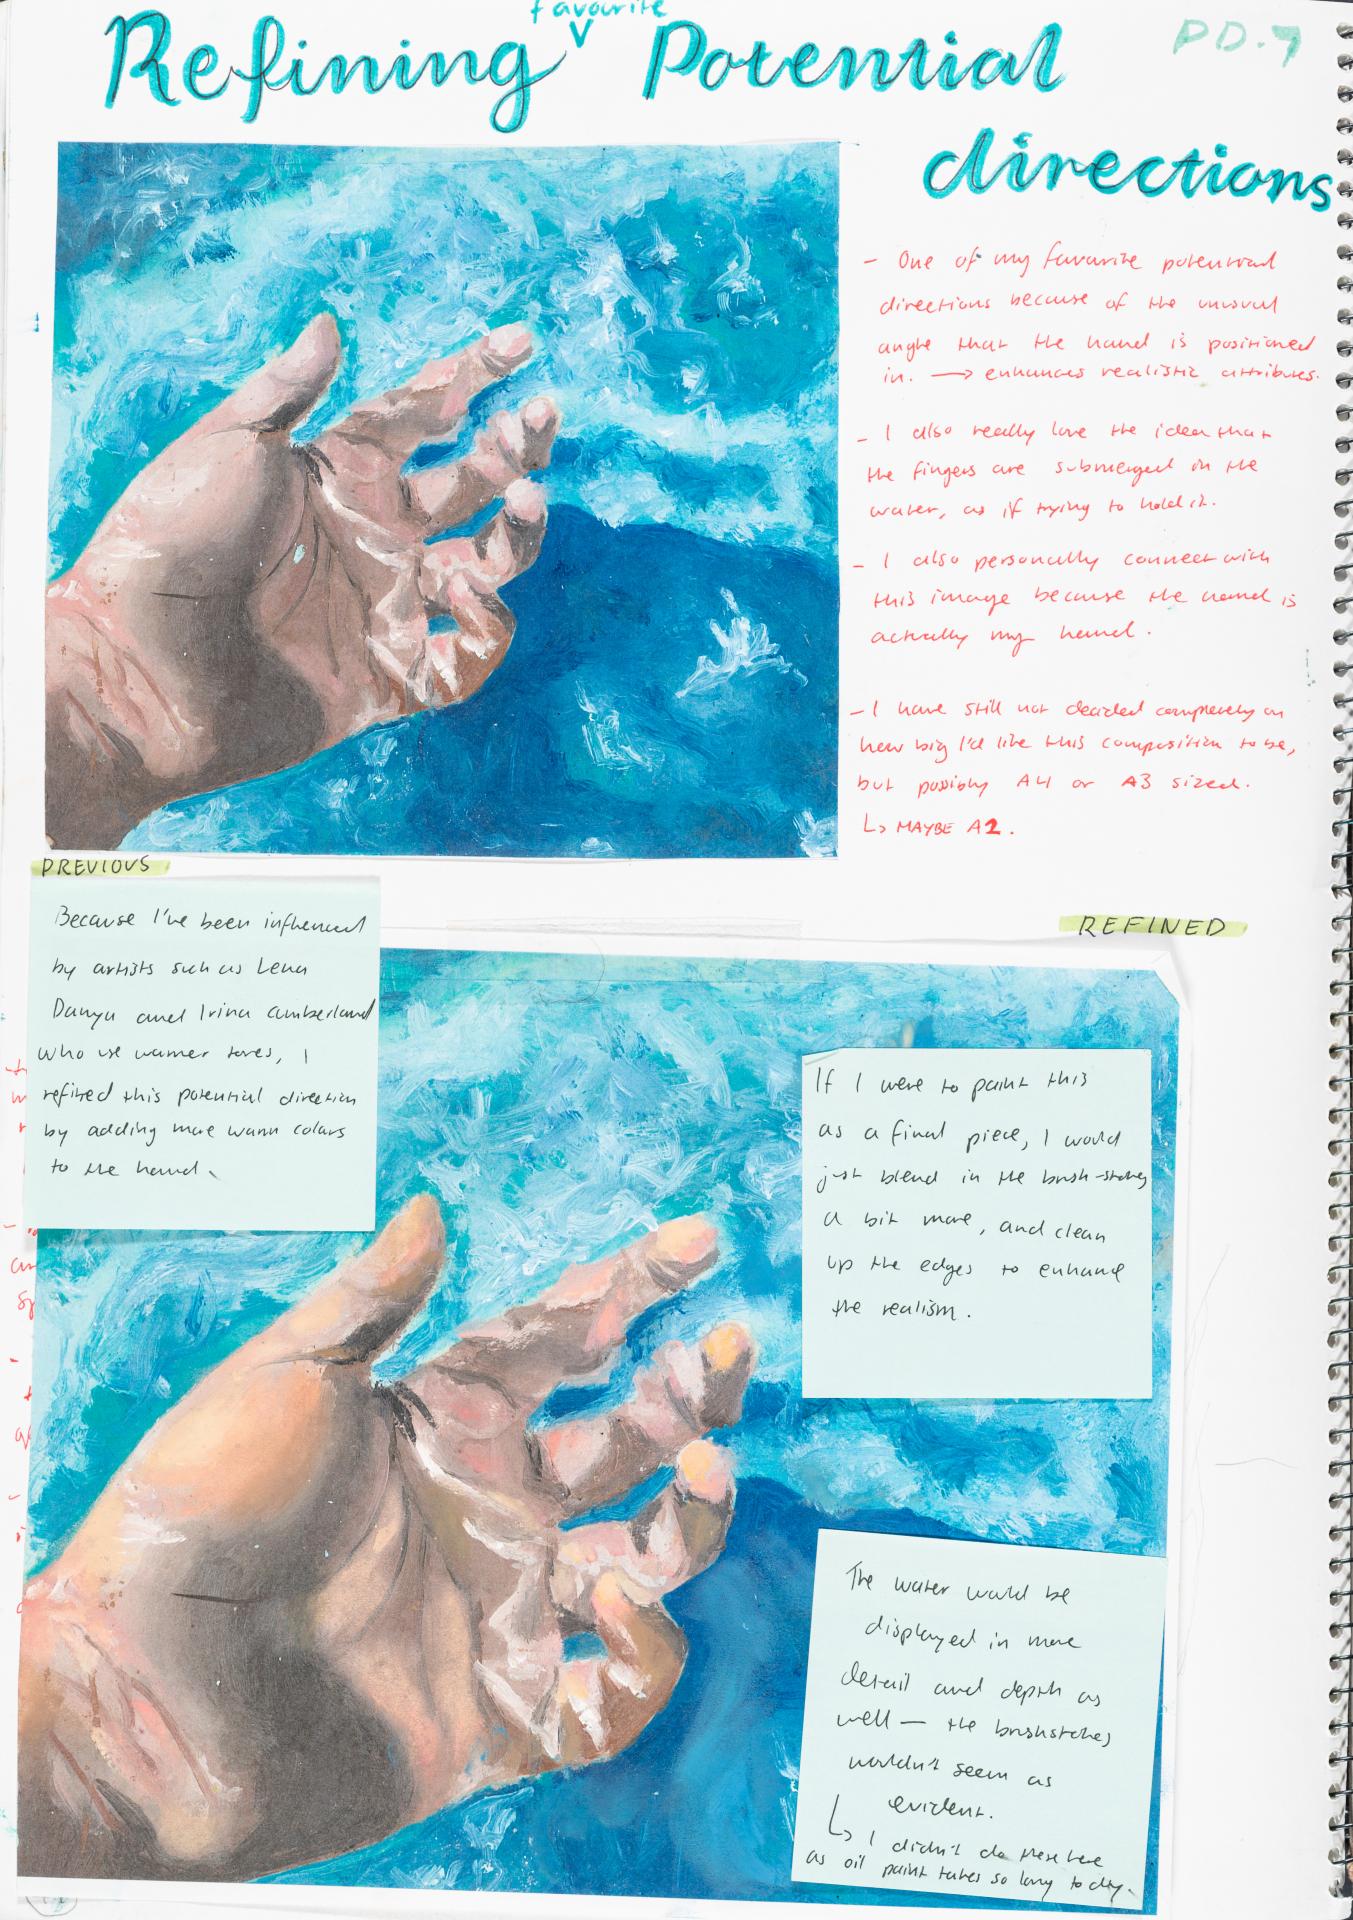 favourite
Refining V Potential
PD.7
directions
- One of my favourite potential
directions because of the unusual
angle that the hand is positioned
in. → enhances realistic attributes.
- I also really love the idea that
the fingers are submerged in the
water, as if trying to hold it.
- I also personally connect with
this image because the hand is
actually my hand.
- I have still not decided completely on
how big I'd like this composition to be,
but possibly A4 or A3 sized.
↳ MAYBE A2.
PREVIOUS
Because I've been influenced
by artists such as Lena
Danya and Irina Cumberland
who use warmer tones, I
refined this potential direction
by adding more warm colors
to the hand.
REFINED
If I were to paint this
as a final piece, I would
just blend in the brush-strokes
a bit more, and clean
up the edges to enhance
the realism.
The water would be
displayed in more
detail and depth as
well — the brushstrokes
wouldn't seem as
evident.
↳ I didn't do these here
as oil paint takes so long to dry.